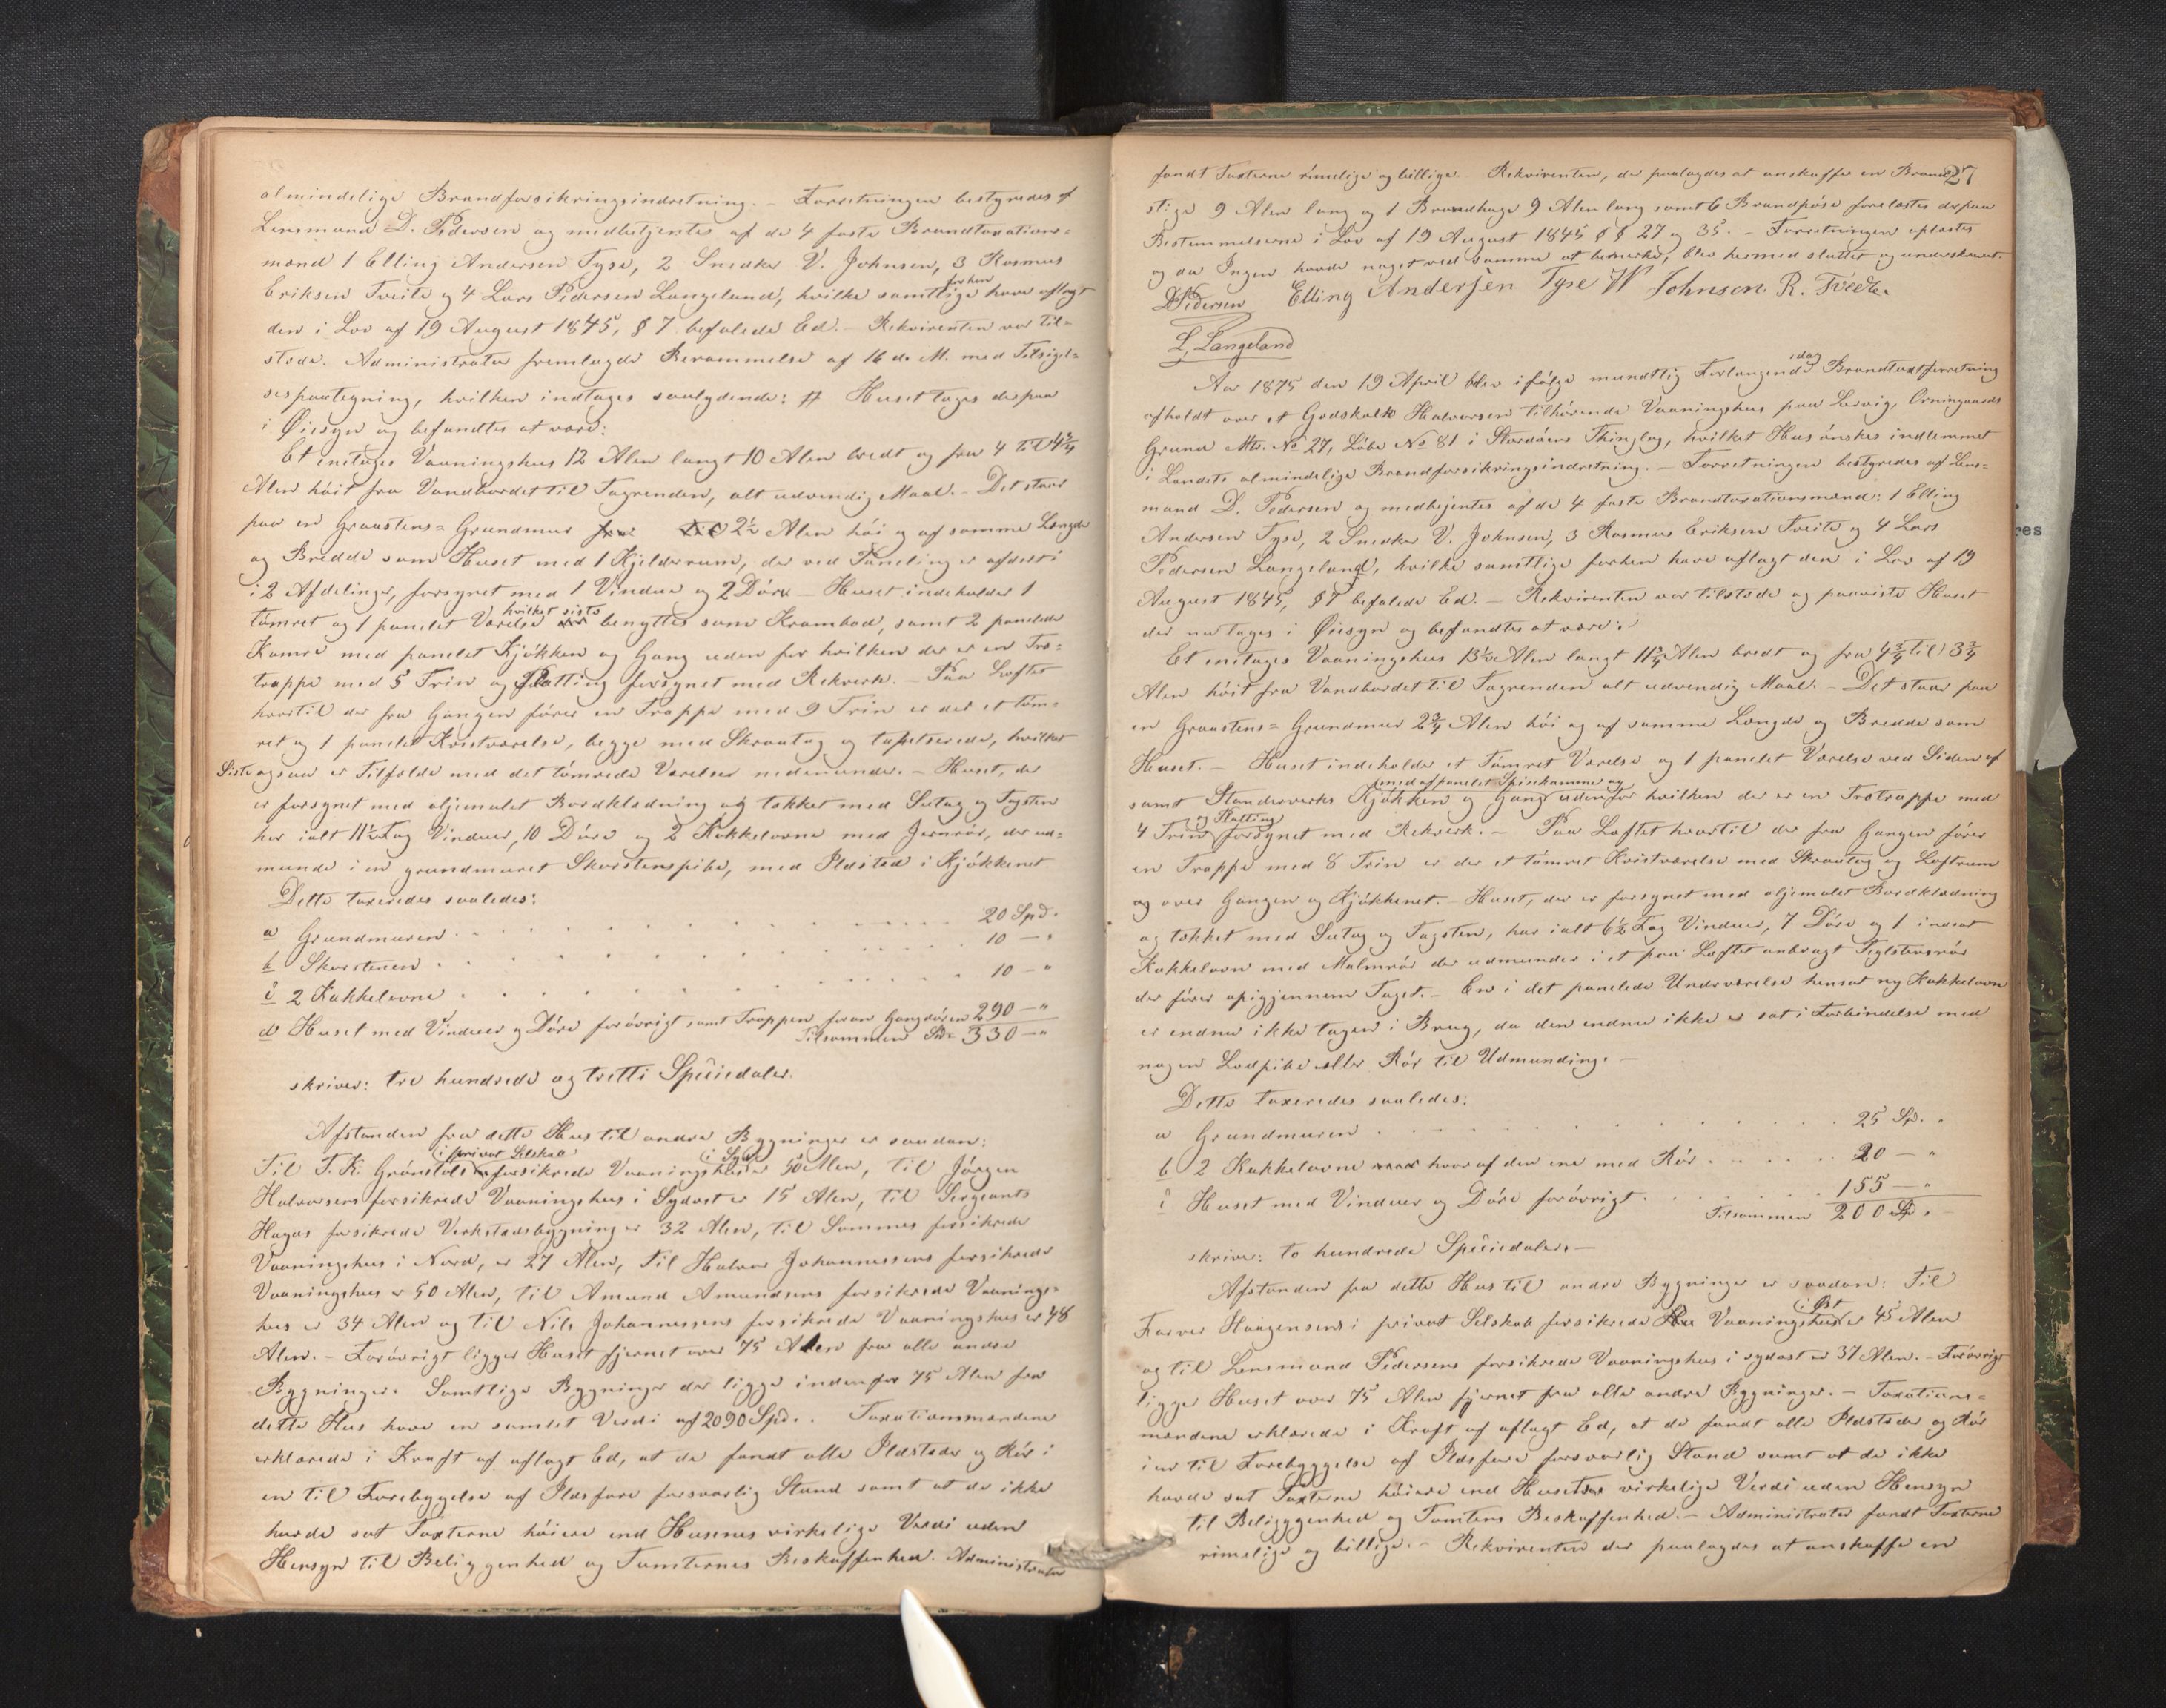 almindelige Brandforsikringsindretning. – Forretningen bestyredes af
Lensmand D. Pedersen og medbetjentes af de 4 faste Brandtaxations=
mænd 1 Elling Andersen Tyse, 2 Snedker V. Johnsen, 3 Rasmus
Eriksen Tveite og 4 Lars Pedersen Langeland, hvilke samtlige forhen have aflagt
den i Lov af 19 August 1845, § 7 befalede Ed. – Rekvirenten var til=
stede. Administrator fremlagde Berammelse af 16 ds M. med Tilsigel=
sespaategning, hvilken indtages saalydende: # Huset toges derpaa
i Øiesyn og befandtes at være:
Et enetages Vaaningshus 12 Alen langt 10 Alen bredt og fra 4 til 4 3/4
Alen høit fra Vandbordet til Tagrenden, alt udvendig Maal. – Det staar
paa en Graastens= Grundmur fra til 2 1/2 Alen høi og af samme Længde
og Bredde som Huset med 1 Kjelderrum, der ved Paneling er afdelt i
i 2 Afdelinger, forsynet med 1 Vindue og 2 Døre – Huset indeholder 1
tømret og 1 panelet Værelse hvilket siste benyttes som Krambod, samt 2 panelede
Kamre med panelet Kjøkken og Gang uden for hvilken der er en Træ=
trappe med 5 Trin og Platting forsynet med Rekverk. – Paa Loftet
hvortil der fra Gangen fører en Trappe med 9 Trin er der et tøm=
ret og 1 panelet Kvistværelse, begge med Skraatag og tapetserede, hvilket
Siste ogsaa er Tilfælde med det tømrede Værelser nedenunder. – Huset, der
er forsynet med oljemalet Bordklædning og tækket med Sutag og Tagsten
har ialt 11 1/2 Fag Vinduer, 10 Døre og 2 Kakkelovne med Jernrør, der ud=
munde i en grundmuret Skorstenspibe, med Ildsted i Kjøkkenet
Dette taxeredes saaledes:
a Grundmuren . . . . . 20 Spd.
b Skorstenen . . . . . 10 – "
c 2 Kakkelovne . . . . . 10 – "
d Huset med Vinduer og Døre forøvrigt samt Trappen foran Gangdøren 290 – "
Tilsammen Spd 330 – "
skriver: tre hundrede og tretti Speciedaler.
Afstanden fra dette Hus til andre Bygninger er saadan:
Til T. K. Grønstøls i privat Selskab forsikrede Vaaningshus i Syd er 50 Alen, til Jørgen
Halvorsens forsikrede Vaaningshus i Sydost er 15 Alen, til Sergeants
Hagas forsikrede Verkstedsbygning er 32 Alen, til Sammes forsikrede
Vaaningshus i Nord, er 27 Alen, til Halvor Johannessens forsikrede
Vaaningshus er 50 Alen, til Amund Amundsens forsikrede Vaanings=
hus er 34 Alen og til Nils Johannessens forsikrede Vaaningshus er 48
Alen. – Forøvrigt ligger Huset fjernet over 75 Alen fra alle andre
Bygninger. Samtlige Bygninger der ligge indenfor 75 Alen fra
dette Hus have en samlet Verdi af 2090 Spd. . Taxationsmændene
erklærede i Kraft af aflagt Ed, at de fandt alle Ildsteder og Rør i
en til Forebyggelse af Ildsfare forsvarlig Stand samt at de ikke
havde sat Taxterne høiere end Husenes virkelige Verdi uden
Hensyn til Beliggenhed og Tomternes Beskaffenhed. Administrator
27
fandt Taxterne rimelige og billige. Rekvirenten, der paalagdes at anskaffe en Brand=
stige 9 Alen lang og 1 Brandhage 9 Alen lang samt 6 Brandpøse forelæstes derpaa
Bestemmelserne i Lov af 19 August 1845 § § 27 og 35. – Forretningen oplæstes
og da Ingen havde noget ved samme at bemerke, blev hermed sluttet og underskrevet.
D. Pedersen Elling Andersen Tyse W Johnsen R. Tveite.
L, Langeland
Aar 1875 den 19 April blev ifølge mundtlig Forlangende idag Brandtaxtforretning
afholdt over et Godskalk Halvorsen tilhørende Vaaningshus paa Lervig, Orningaards
Grund Mtr. No 27, Løbe No 81 i Stordøens Thinglag, hvilket Hus ønskes indlemmet
i Landets almindelige Brandforsikringsindretning. – Forretningen bestyredes af Lens=
mand D. Pedersen og medbetjentes af de 4 faste Brandtaxationsmænd: 1 Elling
Andersen Tyse, 2 Snedker V. Johnsen, 3 Rasmus Eriksen Tveite og 4 Lars
Pedersen Langeland, hvilke samtlige forhen have aflagt den i Lov af 19
August 1845, § 7 befalede Ed. – Rekvirenten var tilstede og paaviste Huset
der nu toges i Øiesyn og befandtes at være:
Et enetages Vaaningshus 13 1/2 Alen langt 11 3/4 Alen bredt og fra 4 3/4 til 3 3/4
Alen høit fra Vandbordet til Tagrenden alt udvendig Maal. – Det staar paa
en Graastens= Grundmur 2 3/4 Alen høi og af samme Længde og Bredde som
Huset. – Huset indeholder et Tømret Værelse og 1 panelet Værelse ved Siden af
samt Standerverks Kjøkken med afpanelet Spisekammer og og Gang udenfor hvilken der er en Trætrappe med
4 Trin og Platting forsynet med Rekverk. – Paa Loftet hvortil der fra Gangen fører
en Trappe med 8 Trin er der et tømret Kvistværelse med Skraatag og Loftrum
og over Gangen og Kjøkkenet. – Huset, der er forsynet med oljemalet Bordklædning
og tækket med Sutag og Tagsten, har ialt 6 1/2 Fag Vinduer, 7 Døre og 1 indsat
Kakkelovn med Malmrør der udmunder i et paa Loftet anbragt Teglstensrør
der fører opigjennem Taget. – En i det panelede Underværelse hensat ny Kakkelovn
er endnu ikke tagen i Brug, da den endnu ikke er sat i Forbindelse med
nogen Lodpibe eller Rør til Udmunding. –
Dette taxeredes saaledes:
a Grundmuren . . . . . 25 Sp. "
b 2 Kakkelovne hvoraf den ene med Rør . . . . 20 – "
c Huset med Vinduer og Døre forøvrigt . . . . 155 – "
Tilsammen 200 Sp "
skriver: to hundrede Speciedaler. –
Afstanden fra dette Hus til andre Bygninger er saadan: Til
Farver Haagensens i privat Selskab forsikrede Vaaningshus i Øst er 45 Alen
og til Lensmand Pedersens forsikrede Vaaningshus i sydost er 37 Alen. – Forøvrigt
ligger Huset over 75 Alen fjernet fra alle andre Bygninger. – Taxations=
mændene erklærede i Kraft af aflagt Ed, at de fandt alle Ildsteder og Rør
i en til Forebyggelse af Ildsfare forsvarlig Stand samt at de ikke
havde sat Taxterne høiere end Husets virkelige Verdi uden Hensyn
til Beliggenhed og Tomtens Beskaffenhed. – Administrator fandt Taxterne
rimelige og billige. – Rekvirenten der paalagdes at anskaffe en